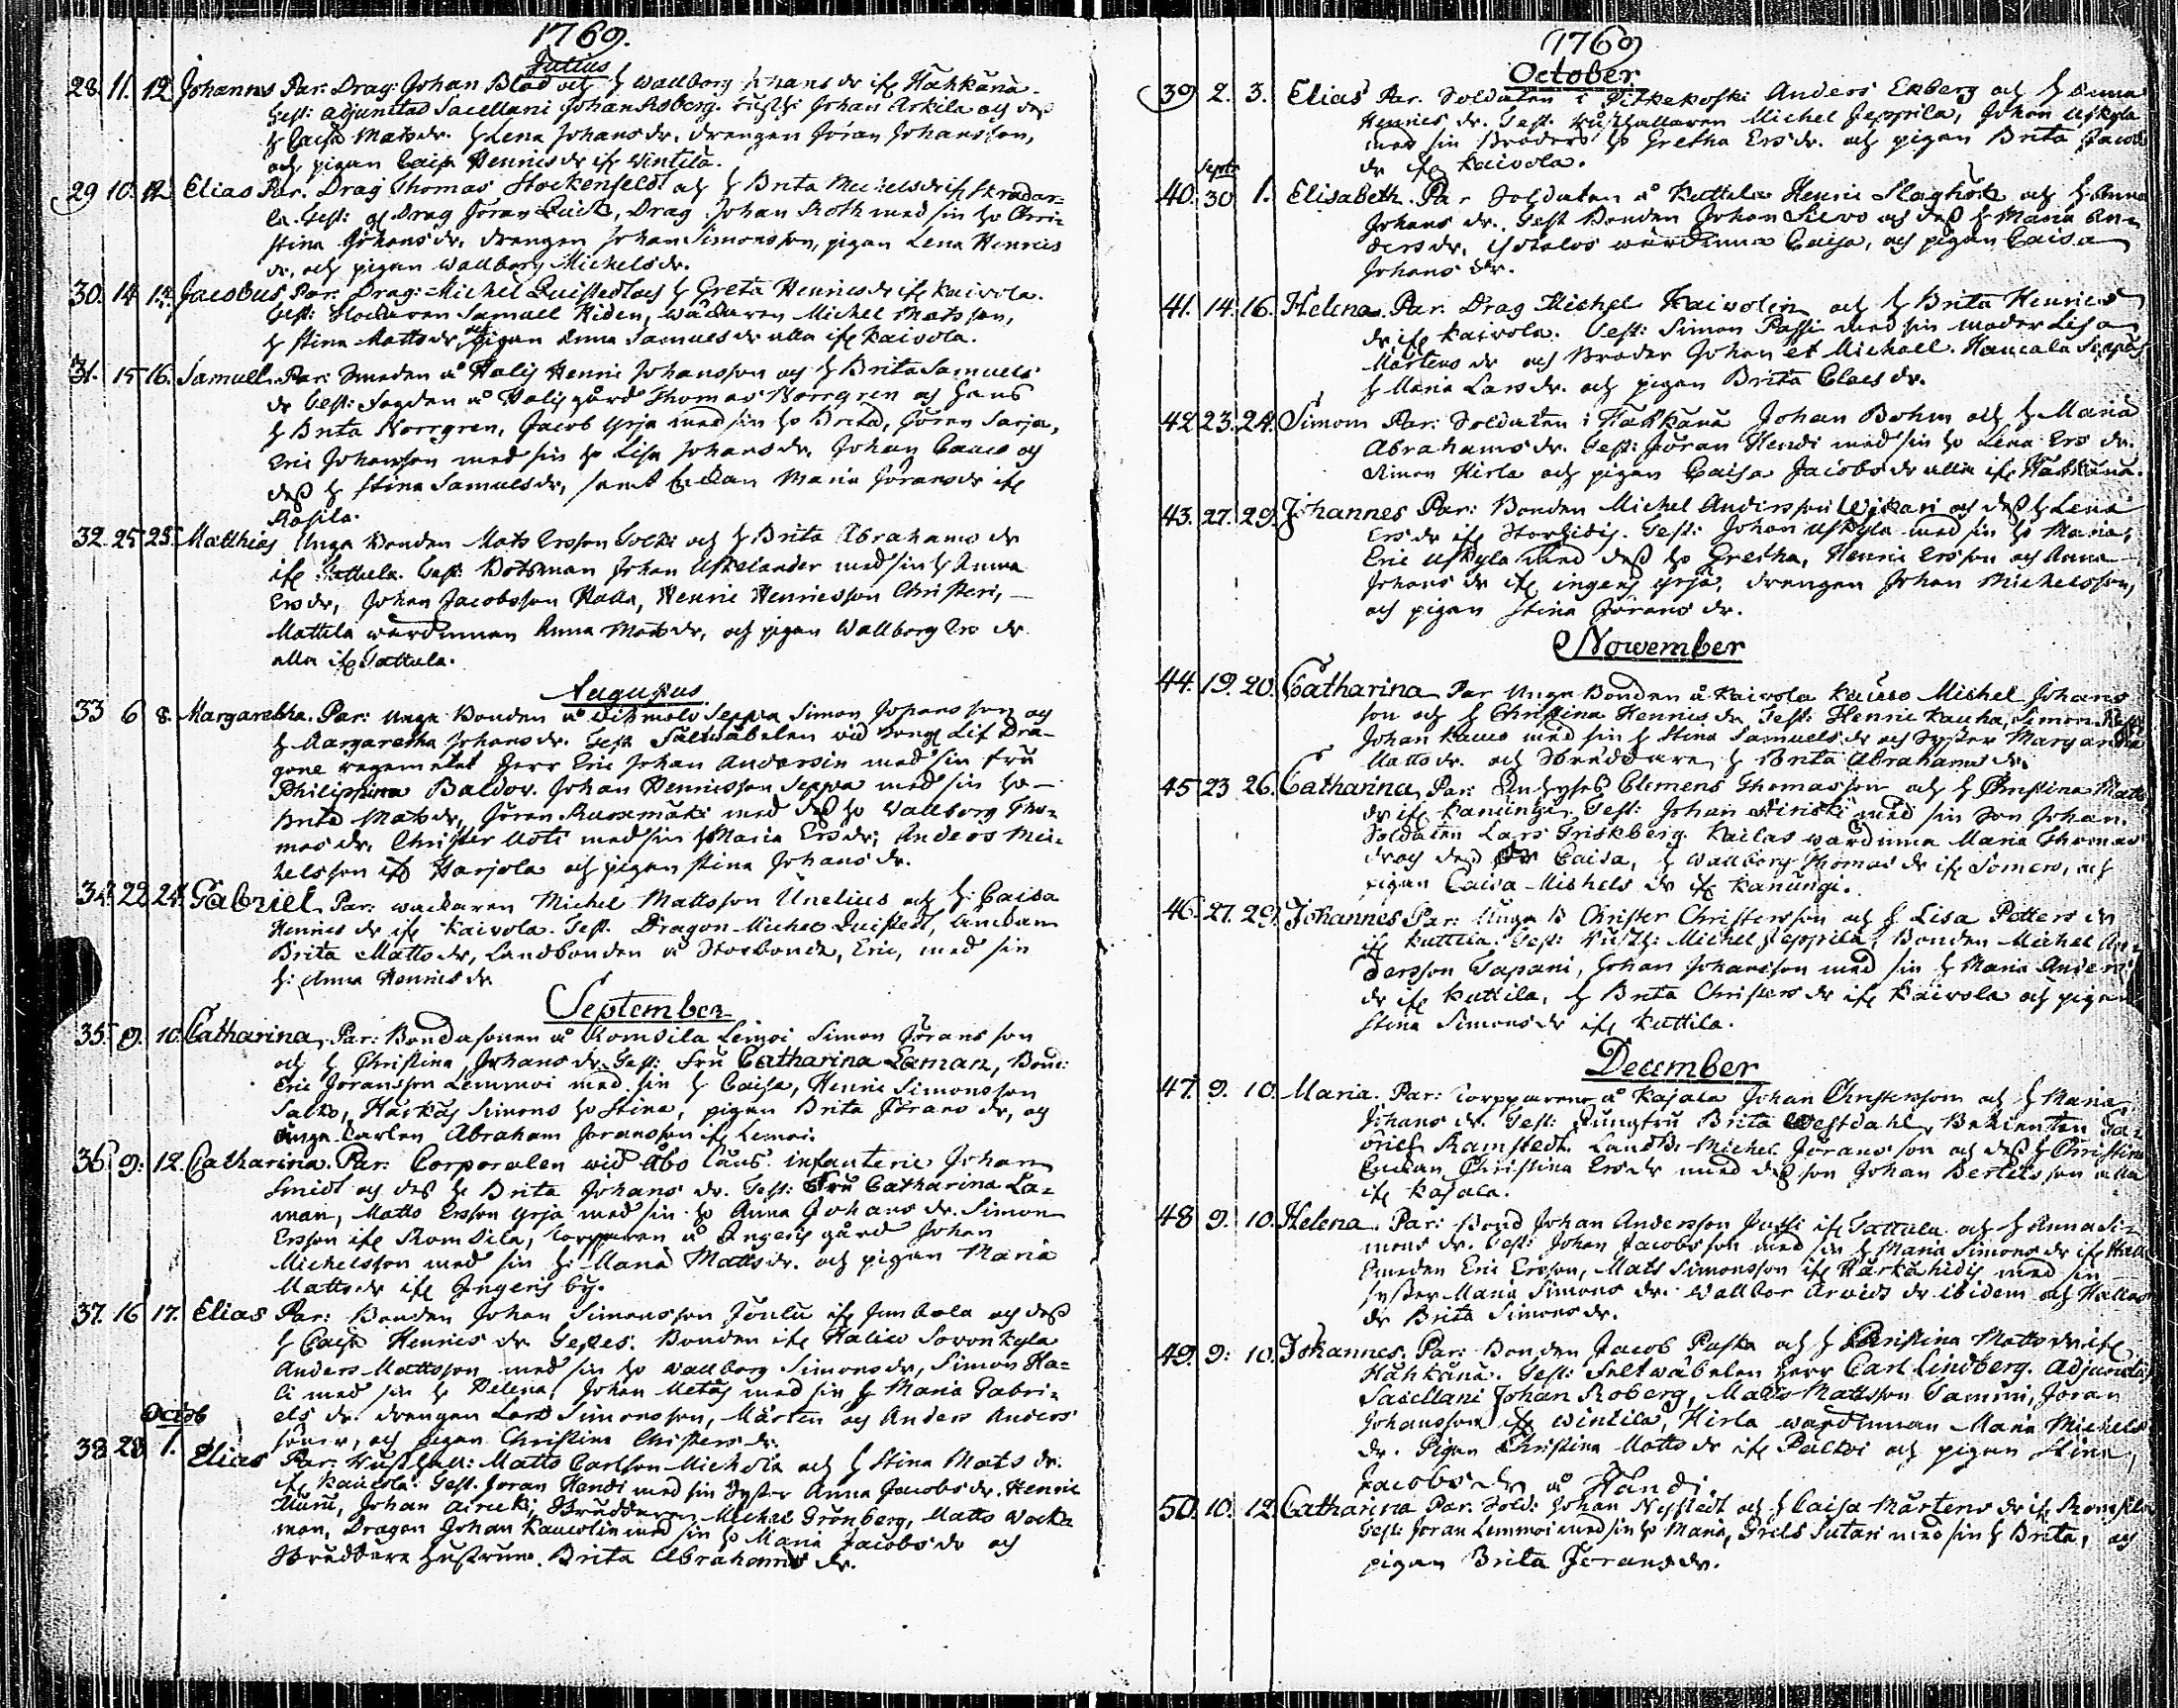 1769.
Julius
28. 11. 12. Johannes Par: Drag: Johan Blad och h Wallborg Johans dr ifr Hahkana.
test: adjunctus Sacellani Johan Roberg. rusth: Johan Arkila och dess
h Caisa Matsdr. h Lena Johansdr. drengen Jöran Johansson,
och pigan Caisa Henricsdr ifr Wintila.
29 10. 12. Elias Par. Drag Thomas Stockenfeldt och h Brita Michelsdr ifr Skrädar-
la. Test: Drag Jöran Quick, Drag Johan Roth med sin ho Chri-
stina Johansdr. drengen Johan Simonsson, pigan Lena Henrics
dr, och pigan Wallborg Michelsdr.
30. 14 14. Jacobus, Par. Drag: Michel Quistedt och h Greta Henricsdr ifr Kaivola.
test: Samuel Widen, Michel Matsson,
h Stina Mattsdr, och pigan Anna Samuelsdr alla ifr Kaivola.
31. 15 16. Samuel. Par: Smeden å Halis Henric Johansson och h Brita Samuels
dr test: Fogden å Halis gård Thomas Norrgren och hans
h Brita Norrgren, Jacob Yrja med sin ho Brita, Jören Sarja,
Eric Johansson med sin ho Lisa Johansdr. Johan Cauco och
dess h Stina Samuelsdr, samt Enkan Maria Göransdr ifr
Rosila.
32. 25 25. Matthias Unga Bonden Mats Ersson och h Brita Abrahams dr
ifr Tattula. test: Botsman Johan Uskelander med sin h Anna
Ersdr, Johan Jacobsson Halla, Henric Henricsson Christeri, —
Mattila wärdinnan Anna Matsdr, och pigan Wallborg Ers dr
alla ifr Tattula.
Augustus
33 6 8. Margaretha. Par: Unga Bonden å Seppa Simon Johansson och
h Margaretha Johansdr. Test Fältwäbelen wid Kongl Lif Dra-
gone regementet Herr Eric Johan Andersin med sin fru
Philippina Baldov. Johan Henricsson Seppa med sin ho —
Brita Matsdr, Jöran Ruoxmäki med dess ho Wallborg Tho-
mas dr. Christer Uoti med sin h Maria Ersdr; Anders Mic-
helsson ifr Harjola och pigan Stina Johans dr.
34. 22 24. Gabriel Par: Michel Mattsson Unelius och h: Caisa
Henrics dr ifr Kaivola. Test. Dragon Michel Quistedt,
Brita Mattsdr, Landbonden å Storbonde, Eric, med sin
h: Anna Henricsdr
September
35. 9. 10. Catharina, Par: Bondasonen å Romsila Lemoi Simon Jöransson
och h Christina Johansdr. Test: Fru Catharina Laman, Bond:
Eric Joransson Lemmoi med sin h Caisa, Henric Simonsson
Salko, Simons ho Stina, pigan Brita Jörans dr, och
unga karlen Abraham Joransson ifr Lemoi.
36 9: 12. Catharina. Par: Corporalen wid Åbo läns infanterie Johan
Smidt och des h: Brita Johans dr. Test: Fru Catharina La-
man, Matts Ersson Yrja med sin ho Anna Johans dr. Simon
Ersson ifr Romsila, Torpparen å Ingeris gård Johan
Michelsson med sin h: Maria Matts dr. och pigan Maria
Matts dr ifr Ingeris by.
37. 16 17. Elias Par: Bonden Johan Simonsson Joulu ifr och dess
h Caisa Henrics dr Testes. Bonden ifr
Anders Mattsson med sin ho Wallborg Simonsdr, Simon Ha-
li med sin h Helena, Johan med sin h Maria Gabri-
els dr. drengen Lars Simonsson, Mårten och Anders Anders
söner, och pigan Christina Christersdr.
Octob
38 28 1. Elias Par: Rusthåll: Matts Carlsson och h Stina Mats dr.
ifr Kaivola. Test. Joran Handi med sin Syster Anna Jacobsdr. Henric
Johan Skreddaren Michel Grönberg, Matts
Dragon Johan Kauvolin med sin ho Maria Jacobs dr och
Skreddare hustrun. Brita Abrahams dr.
1769
October
39 2. 3. Elias Par. Soldaten i Pitkekoski Anders Ekberg och h Anna
Henrics dr. Test. Rusthållaren Michel Jeppila, Johan Uskyla
med sin Broders ho Gretha Ers dr. och pigan Brita Jacobs
dr ifr Kaivola.
Septr
40. 30 1. Elisabeth. Par Soldaten å Kuttila Henric Slaghök och h Anna
Johans dr. Test Bonden Johan och dess h Maria An-
ders dr, wärdinna Caisa, och pigan Caisa
Johans dr.
41. 14. 16. Helena. Par. Drag Michel Kaivolin och h Brita Henrics
dr ifr Kaivola. Test: Simon Passi med sin moder Lisa
Mårtens dr och Broder Johan et Michael.
h Maria Lars dr. och pigan Brita Claes dr.
42 23. 24. Simon Par: Soldaten i Hahkana Johan Bohm och h Maria
Abrahams dr. Test: Jöran Hendi med sin ho Lena Ers dr.
Simon Hirla och pigan Caisa Jacobs dr alla ifr Hahkana.
43. 27. 29. Johannes Par: Bonden Michel Andersson Wikari och dess h Lena
Ers dr ifr Storhidis. Test: Johan Uskyla med sin ho Maria,
Eric Uskyla med dess ho Gretha, Henric Ersson och Anna
Johans dr ifr Ingeris Yrja, drengen Johan Michelsson,
och pigan Stina Jörans dr.
November
44. 19. 20. Catharina Par Unga Bonden å Kaivola Kauco Michel Johans
son och h Christina Henrics dr Test: Henric Kauha, Simon
Johan Kauco med sin h Stina Samuels dr och Syster Margaretha
Matts dr. och Skreddare h Brita Abrahams dr.
45 23 26. Catharina, Par: Inhyses Clemens Thomasson och h Christina Matts
dr ifr Kanungi. Test: Johan med sin Son Johan.
Soldaten Lars Friskberg. Kailas wärdinna Maria Thomas
dr och dess dr Caisa, h Wallborg Thomas dr ifr Somero, och
pigan Caisa Michels dr ifr Kanungi.
46. 27. 29. Johannes Par: Unga B Christer Christersson och h Lisa Petters dr
ifr Kuttila. Test: Rusth: Michel Jeppila, Bonden Michel An-
dersson Tapani, Johan Johansson med sin h Maria Anders
dr ifr Kuttila, h Brita Christers dr ifr Kaivola och pigan
Stina Simons dr ifr Kuttila.
December
47. 9. 10. Maria. Par: Torpparen å Kajala Johan Christersson och h Maria
Johans dr. Test: Jungfru Brita Westdahl, Betienten Ga-
briel Ramstedt. Landb: Michel Jöransson och dess h Christina
Enckan Christina Ersdr med dess son Johan Bertelsson alla
ifr Kajala.
48 9. 10. Helena. Par: Bond Johan Andersson Jussi ifr Tattula och h Anna Si-
mons dr. Test: Johan Jacobsson med sin h Maria Simons dr ifr
Smeden Eric Ersson, Mats Simonsson ifr Härkähidis med sin
syster Maria Simons dr. Wallbor Arvids dr ibidem och
dr Brita Simons dr.
49. 9: 10. Johannes. Par: Bonden Jacob Paska och h Christina Matts dr ifr
Hahkana. Test: Feltwäbelen Herr Carl Lindberg. Adjunctus
Sacellani Johan Roberg, Matts Mattsson Tammi, Jöran
Johansson ifr Wintila, Hirla wärdinnan Maria Michels
dr. Pigan Christina Matts dr ifr Palkoi och pigan Stina,
Jacobs dr å Händi
50. 10. 12. Catharina Par: Sold: Johan Nystedt och h Caisa Mårtens dr ifr Romsila
Test: Joran Lemmoi med sin ho Maria, Grels Sutari med sin h Brita, och
pigan Brita Jörans dr.